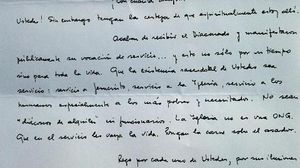 Con mucho
Ustedes! Sin embargo tengan la certeza de que espiritualmente estoy allí.
Acaban de recibir el Diaconado y manifestaron
públicamente su vocación de servicio... y esto no sólo por un tiempo
sino para toda la vida. Que la existencia sacerdotal de Ustedes sea
servicio: servicio a Jesucristo, servicio a la Iglesia, servicio a los
hermanos especialmente a los más pobres y necesitados. No sean
"diáconos de alquiler" ni funcionarios. La Iglesia no es una ONG.
Que en el servicio les vaya la vida. Pongan la carne sobre el asador.
Rezo por cada uno de Ustedes, por sus